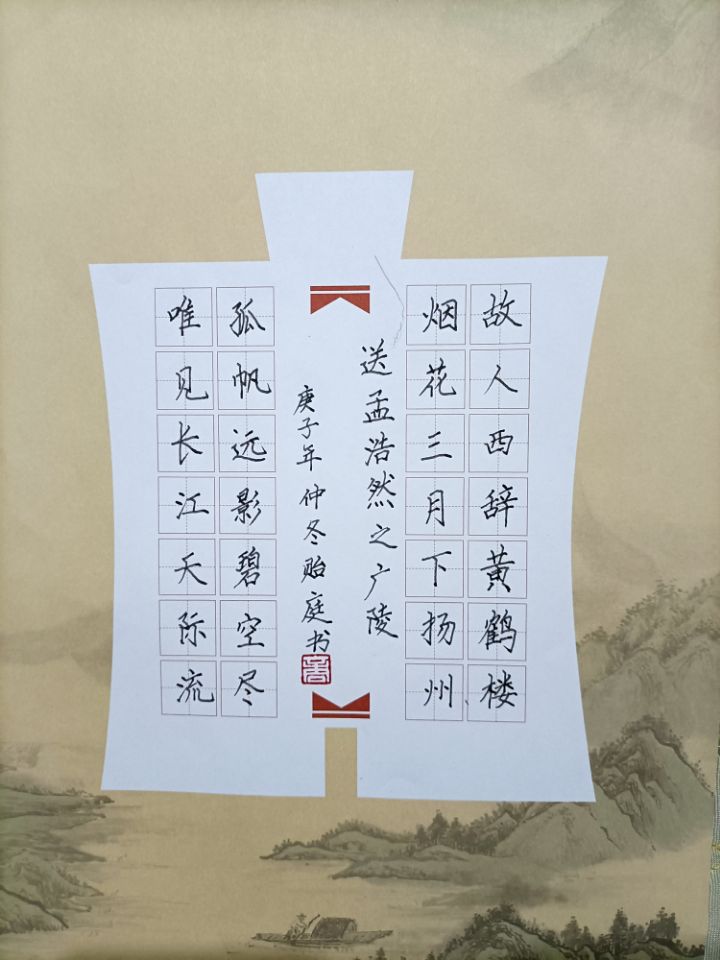 故人西辞黄鹤楼
烟花三月下扬州
送孟浩然之广陵
庚子年仲冬贻庭书
孤帆远影碧空尽
唯见长江天际流